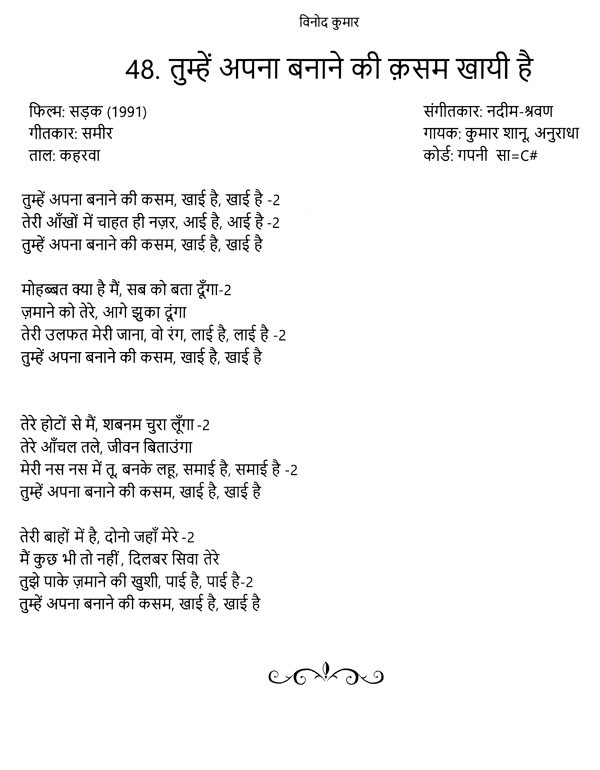 विनोद कुमार
48. तुम्हें अपना बनाने की क़सम खायी है
फिल्म: सड़क (1991)
संगीतकार: नदीम-श्रवण
गीतकार: समीर
गायक: कुमार शानू, अनुराधा
ताल: कहरवा
कोर्ड: गपनी सा=C#
तुम्हें अपना बनाने की कसम, खाई है, खाई है -2
तेरी आँखों में चाहत ही नज़र, आई है, आई है -2
तुम्हें अपना बनाने की कसम, खाई है, खाई है
मोहब्बत क्या है मैं, सब को बता दूँगा-2
ज़माने को तेरे, आगे झुका दूंगा
तेरी उलफत मेरी जाना, वो रंग, लाई है, लाई है -2
तुम्हें अपना बनाने की कसम, खाई है, खाई है
तेरे होटों से मैं, शबनम चुरा लूँगा -2
तेरे आँचल तले, जीवन बिताउंगा
मेरी नस नस में तू, बनके लहू, समाई है, समाई है -2
तुम्हें अपना बनाने की कसम, खाई है, खाई है
तेरी बाहों में है, दोनो जहाँ मेरे -2
मैं कुछ भी तो नहीं , दिलबर सिवा तेरे
तुझे पाके ज़माने की खुशी, पाई है, पाई है-2
तुम्हें अपना बनाने की कसम, खाई है, खाई है